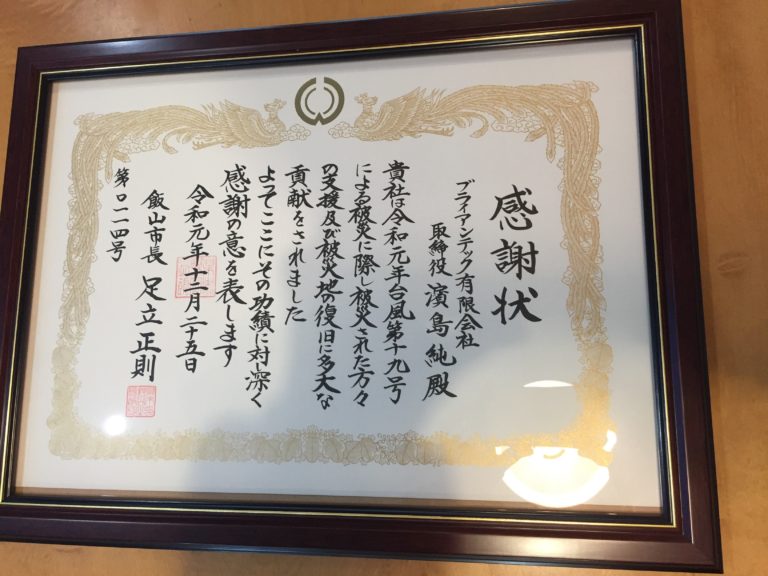 感謝状
ブライアンテック有限会社
取締役 濱島純殿
貴社は令和元年台風第十九号
による被災に際し被災された方々
の支援及び被災地の復旧に多大な
貢献をされました
よってここにその功績に対し深く
感謝の意を表します
令和元年十二月二十五日
飯山市長 足立正則
第〇一一四号